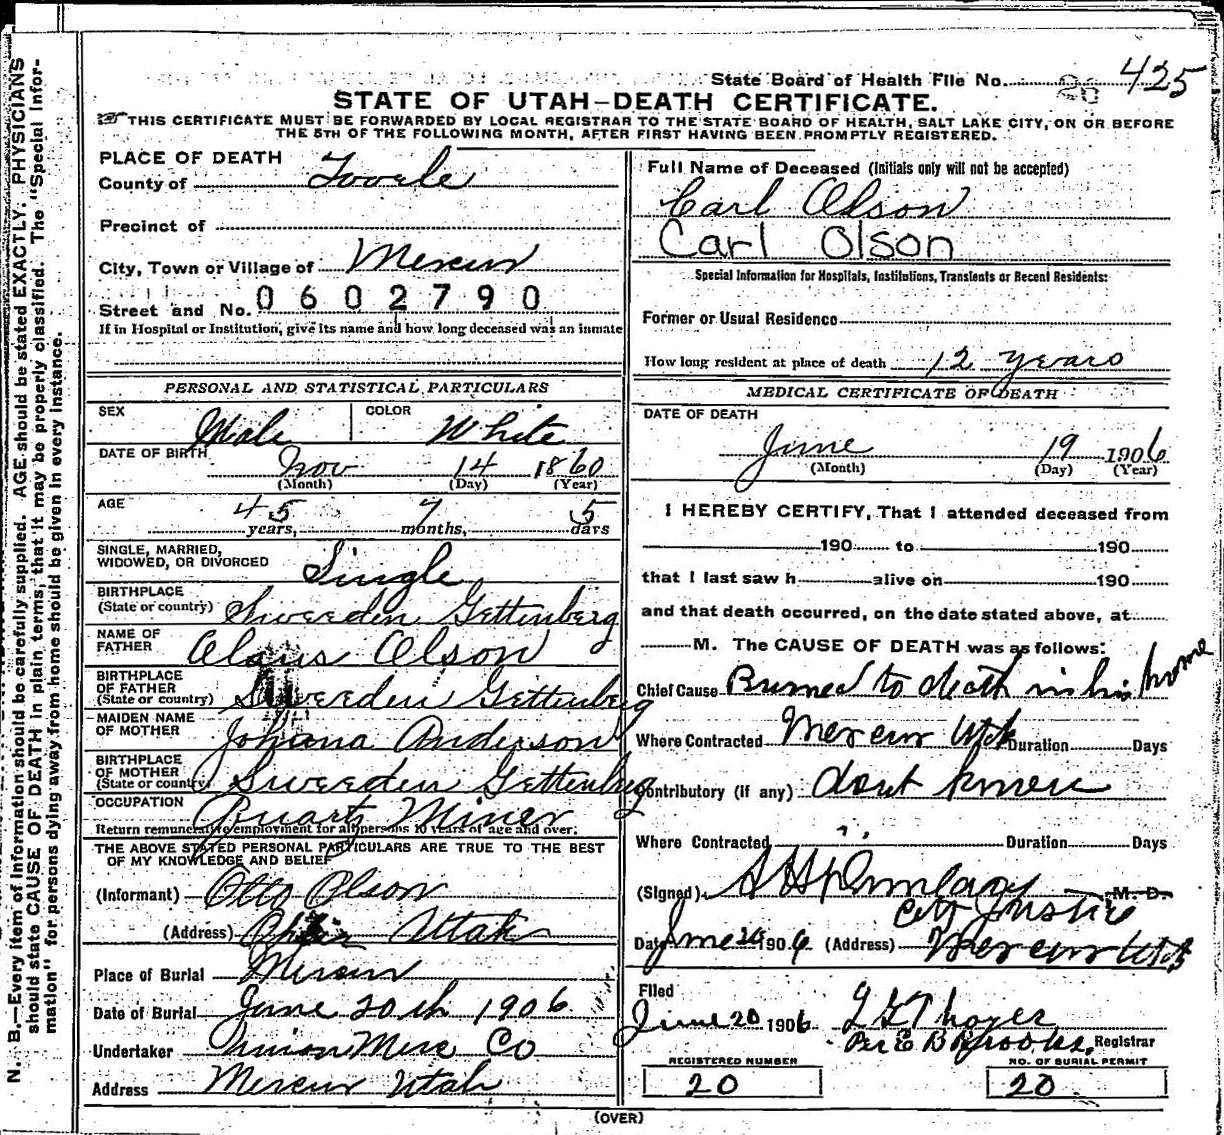 State Board of Health File No. 20 425
STATE OF UTAH—DEATH CERTIFICATE.
THIS CERTIFICATE MUST BE FORWARDED BY LOCAL REGISTRAR TO THE STATE BOARD OF HEALTH, SALT LAKE CITY, ON OR BEFORE
THE 5TH OF THE FOLLOWING MONTH, AFTER FIRST HAVING BEEN PROMPTLY REGISTERED.
N. B.—Every item of information should be carefully supplied. AGE should be stated EXACTLY. PHYSICIANS
should state CAUSE OF DEATH in plain terms, that it may be properly classified. The "Special Infor-
mation" for persons dying away from home should be given in every instance.
PLACE OF DEATH
County of Tooele
Precinct of
City, Town or Village of Mercur
Street and No. 0602790
If in Hospital or Institution, give its name and how long deceased was an inmate
PERSONAL AND STATISTICAL PARTICULARS
SEX Male COLOR White
DATE OF BIRTH Nov 14 1860
(Month) (Day) (Year)
AGE 45 years, 7 months, 5 days
SINGLE, MARRIED,
WIDOWED, OR DIVORCED Single
BIRTHPLACE
(State or country) Sweeden Gettenberg
NAME OF
FATHER Olson
BIRTHPLACE
OF FATHER
(State or country) Sweeden Gettenberg
MAIDEN NAME
OF MOTHER Johana Anderson
BIRTHPLACE
OF MOTHER
(State or country) Sweeden Gettenberg
OCCUPATION Quartz Miner
Return remunerative employment for all persons 10 years of age and over.
THE ABOVE STATED PERSONAL PARTICULARS ARE TRUE TO THE BEST
OF MY KNOWLEDGE AND BELIEF
(Informant) Otto Olson
(Address) Ophir Utah
Place of Burial Mercur
Date of Burial June 20th 1906
Undertaker Union Merc Co
Address Mercur Utah
Full Name of Deceased (Initials only will not be accepted)
Carl Olson
Carl Olson
Special Information for Hospitals, Institutions, Transients or Recent Residents:
Former or Usual Residence
How long resident at place of death 12 years
MEDICAL CERTIFICATE OF DEATH
DATE OF DEATH
June 19 1906
(Month) (Day) (Year)
I HEREBY CERTIFY, That I attended deceased from
190 to 190
that I last saw h alive on 190
and that death occurred, on the date stated above, at
M. The CAUSE OF DEATH was as follows:
Chief Cause Burned to death in his home
Where Contracted Mercur Utah Duration Days
Contributory (if any) dont know
Where Contracted " Duration Days
(Signed) M. D.
City Justice
Date June 20 1906 (Address) Mercur Utah
Filed
June 20 1906 Thayer
Per E B Brooks, Registrar
REGISTERED NUMBER NO. OF BURIAL PERMIT
20 20
(OVER)